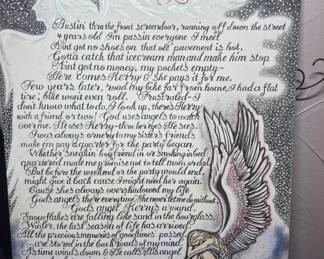 Bustin' thru the front screendoor, running off down the street
4 years old I'm passin everyone I meet
Aint got no shoes on that ole pavement is hot,
Gotta catch that icecream man and make him stop
Aint got no money, my pockets empty-
Here comes Kerry & she pays it for me.
Few years later, road my bike far from home, I had a flat
tire, bike wont even roll. Frustrated - I
dont know what to do, I look up, there's Kerry
with a friend or two! God uses angels to watch
over me. He uses Kerry - thru her eyes He sees.
I was always ornery to my sisters friends
make em pay a quarter for the party began.
Whether sneakin boyfriend in or smoking in bed
quartered made me promise not to tell mom or dad.
But before the weekend or the party would end,
might give it back cause I might need her again.
Cause she's always overshadowed my life
Gods angels there everytime, She never let me do without
Gods angel Kerry's around.
Snowflakes are falling like sand in the hourglass,
Winter, the last season of life has arrived.
All the precious memories of goodtimes passed
are stored in the back roads of my mind.
As time winds down, & He calls His angel